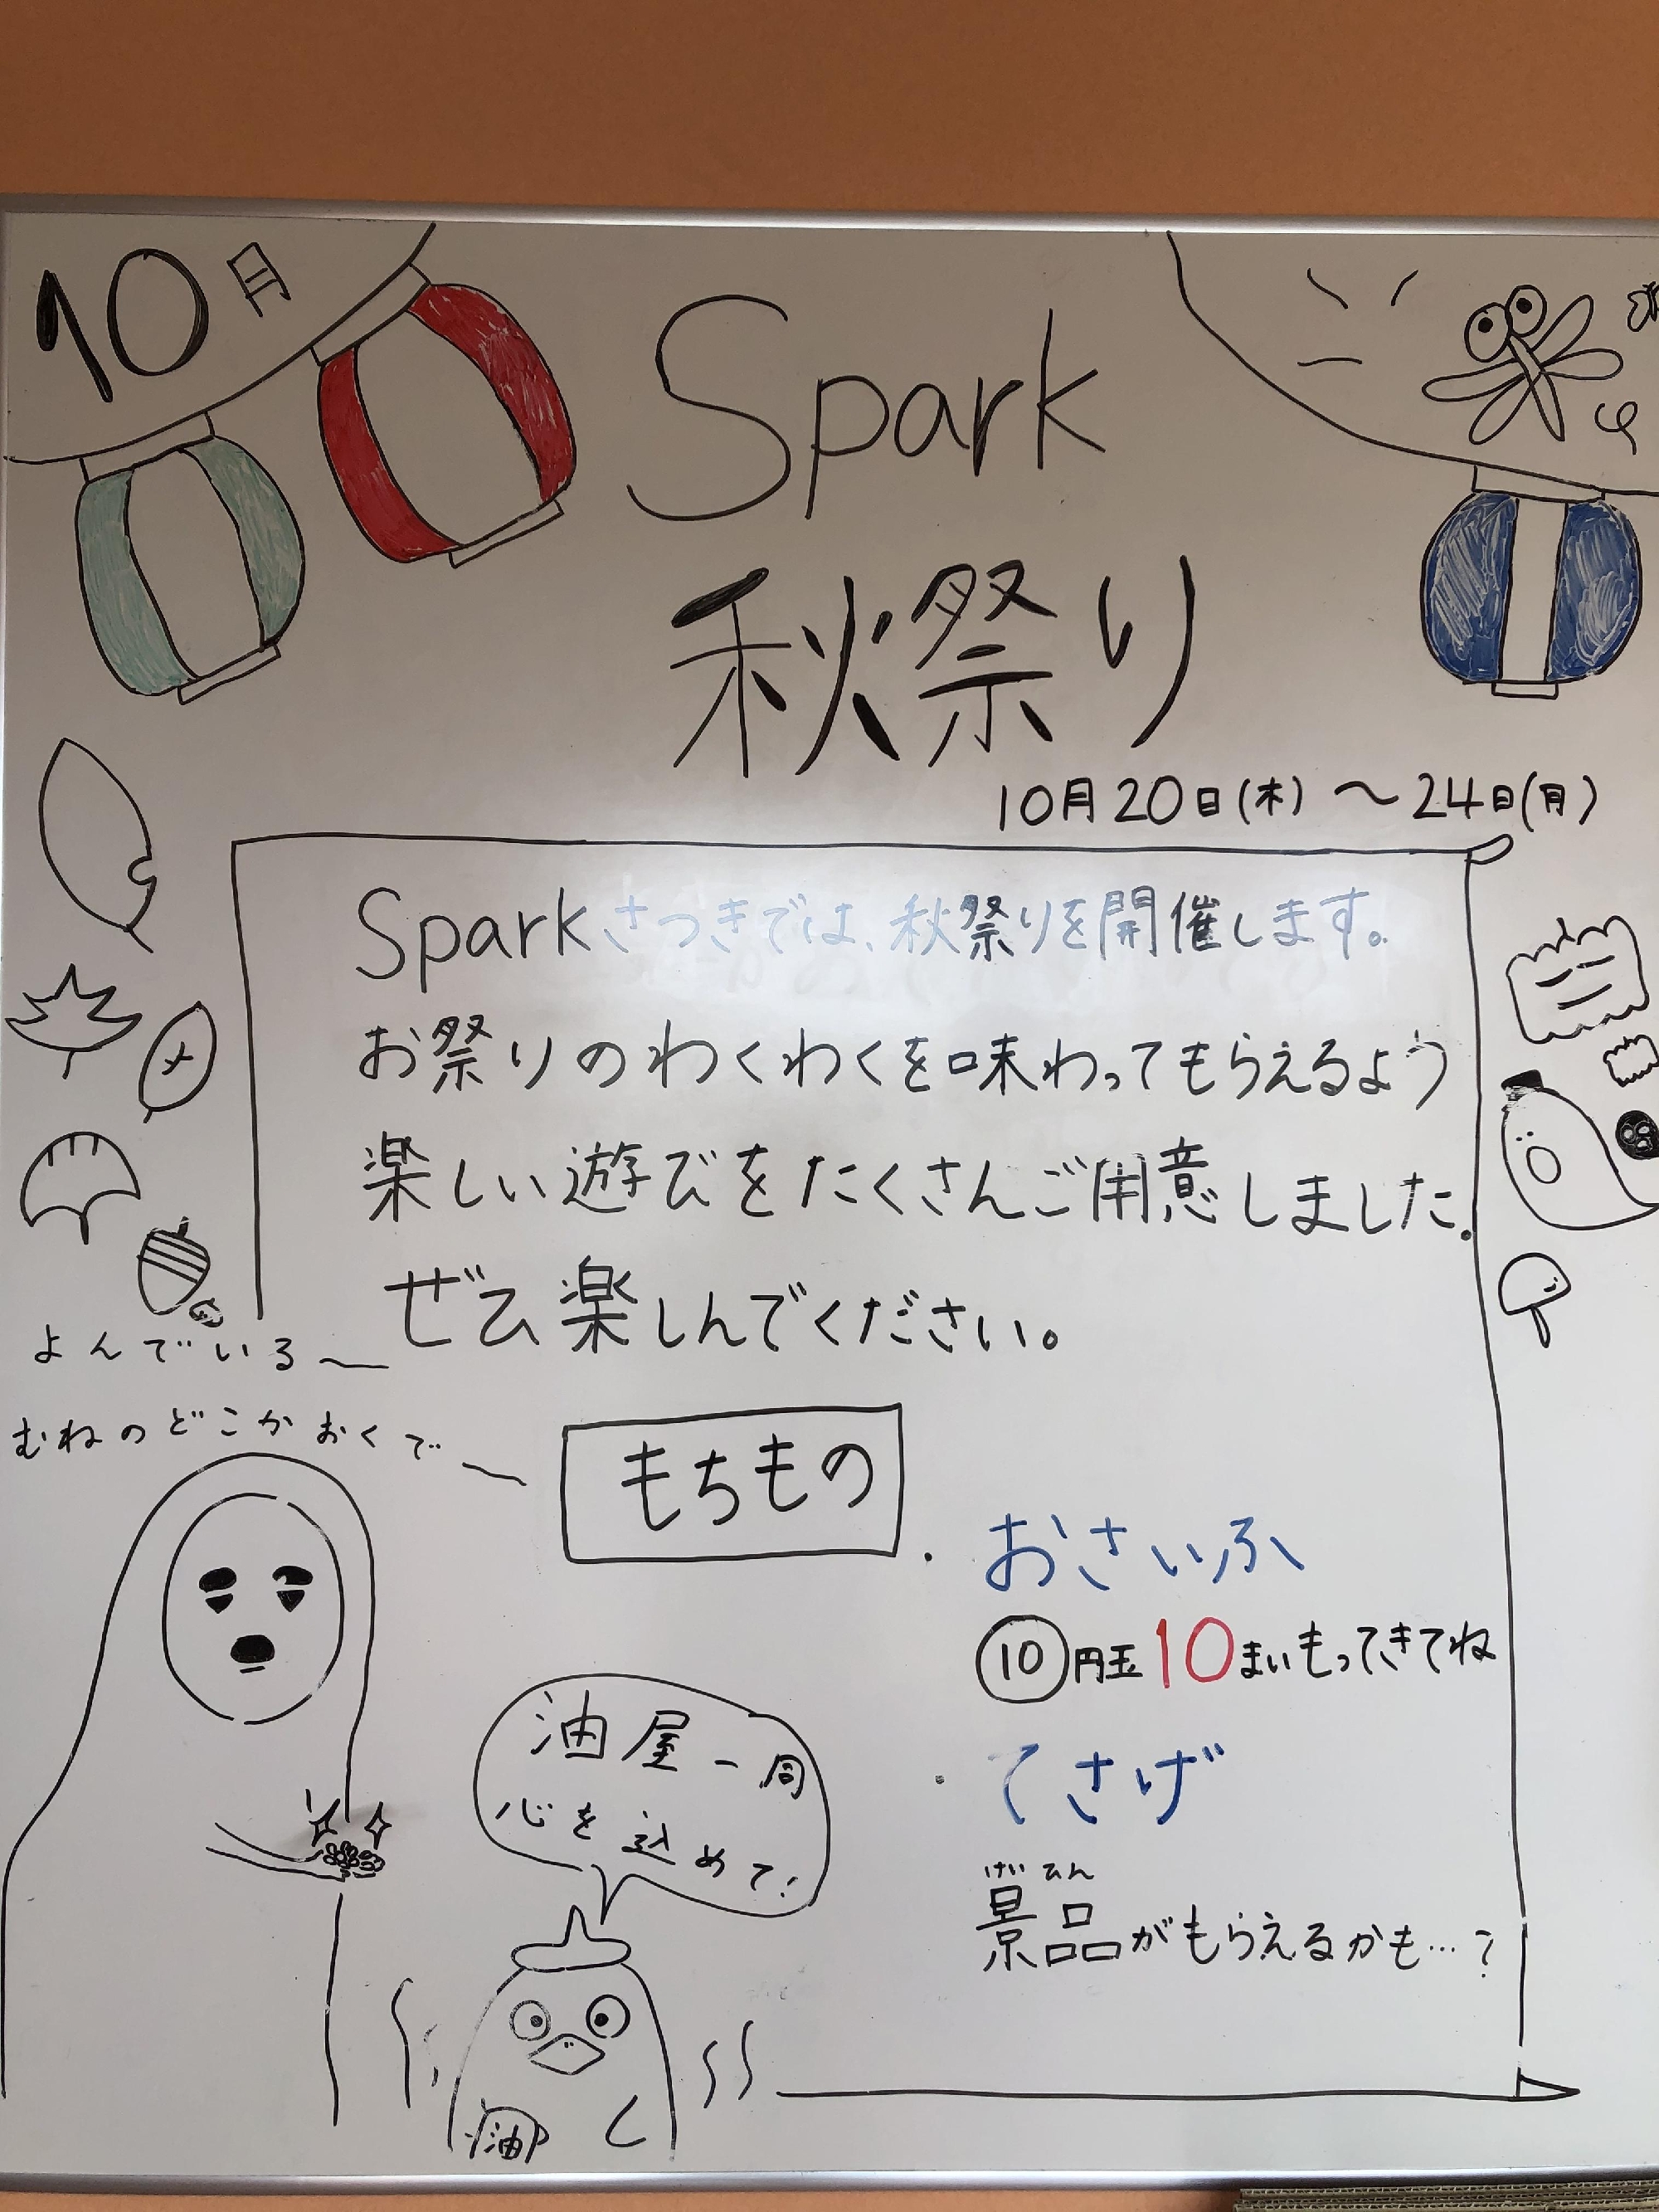 10月
Spark
秋祭り
10月20日(木)～24日(月)
Sparkさつきでは、秋祭りを開催します。
お祭りのわくわくを味わってもらえるよう
楽しい遊びをたくさんご用意しました。
ぜひ楽しんでください。
よんでいる〜
むねのどこかおくで〜
もちもの
・おさいふ
⑩円玉10まいもってきてね
・てさげ
けいひん
景品がもらえるかも…?
油屋一同
心を込めて!
油